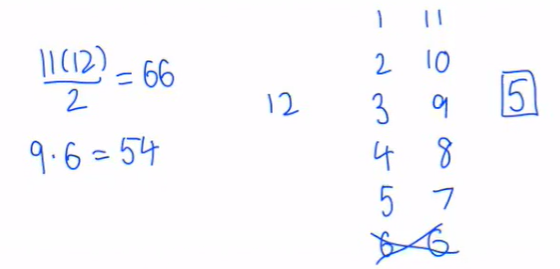 11(12)/2 = 66
9·6 = 54
12
1 11
2 10
3 9
4 8
5 7
6 6
5